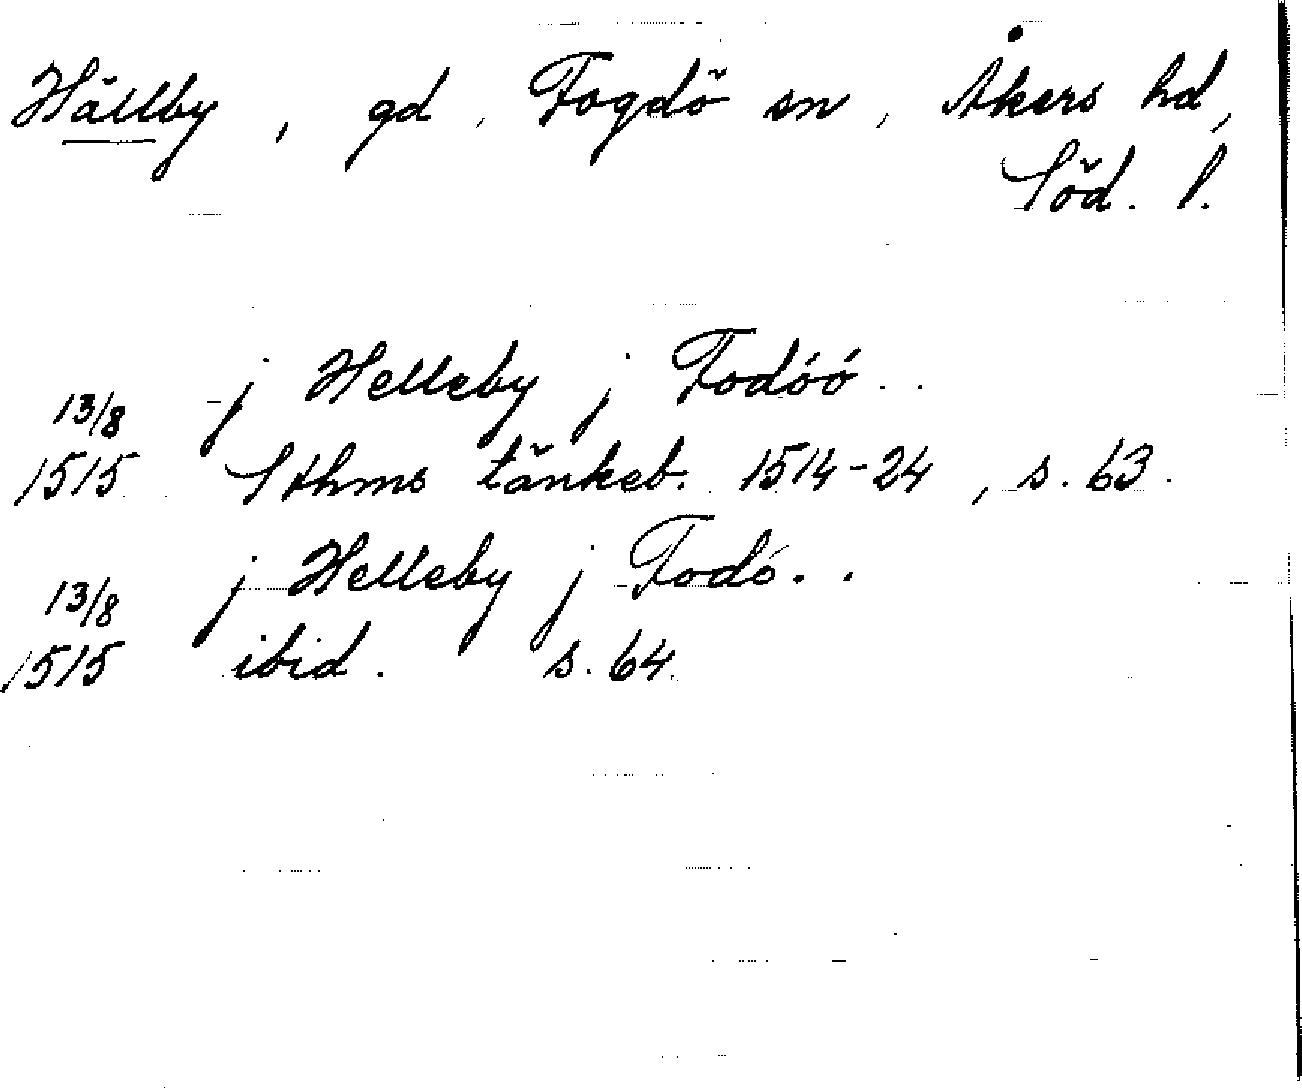 Hällby, gd, Fogdö sn, Åkers hd,
Söd. l.
j Helleby j Fodóó..
13/8
1515 Sthms tänkeb. 1514-24, s. 63.
j Helleby j Fodó..
13/8
1515 ibid. s. 64.